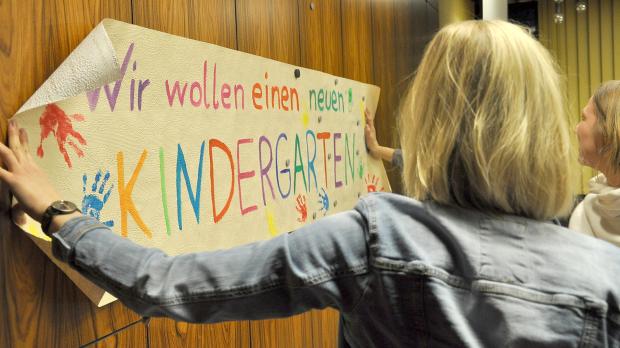 Wir wollen einen neuen
KINDERGARTEN